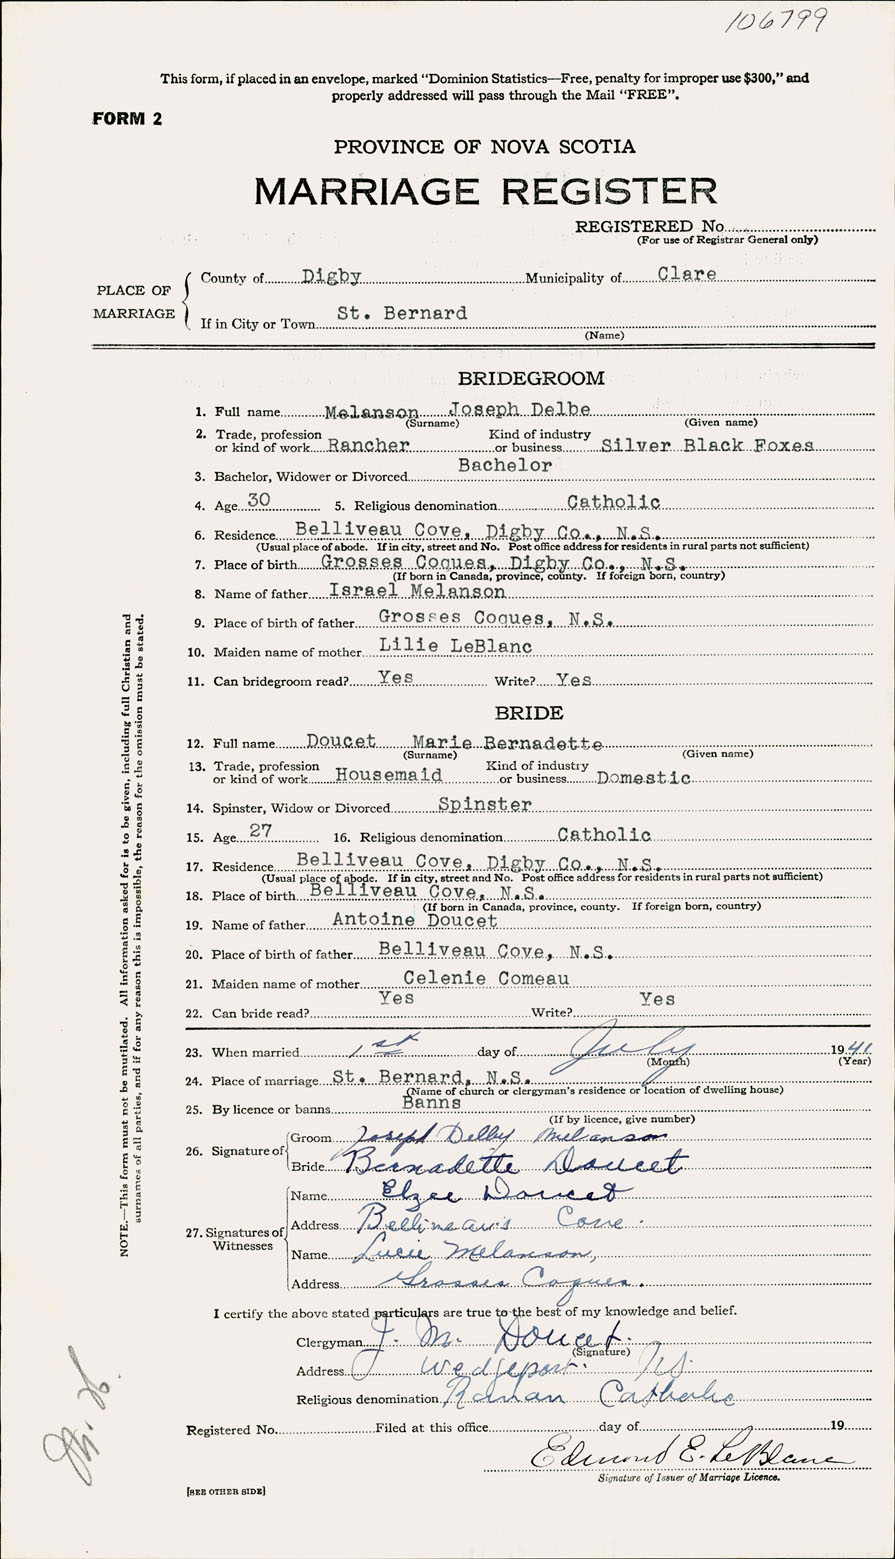 106799
This form, if placed in an envelope, marked "Dominion Statistics—Free, penalty for improper use $300," and
properly addressed will pass through the Mail "FREE".
FORM 2
PROVINCE OF NOVA SCOTIA
MARRIAGE REGISTER
REGISTERED No.
(For use of Registrar General only)
PLACE OF MARRIAGE
County of Digby Municipality of Clare
If in City or Town St. Bernard
(Name)
BRIDEGROOM
1. Full name Melanson Joseph Delbe
(Surname) (Given name)
2. Trade, profession or kind of work Rancher Kind of industry or business Silver Black Foxes
3. Bachelor, Widower or Divorced Bachelor
4. Age 30 5. Religious denomination Catholic
6. Residence Belliveau Cove, Digby Co., N.S.
(Usual place of abode. If in city, street and No. Post office address for residents in rural parts not sufficient)
7. Place of birth Grosses Coques, Digby Co., N.S.
(If born in Canada, province, county. If foreign born, country)
8. Name of father Israel Melanson
9. Place of birth of father Grosses Coques, N.S.
10. Maiden name of mother Lilie LeBlanc
11. Can bridegroom read? Yes Write? Yes
BRIDE
12. Full name Doucet Marie Bernadette
(Surname) (Given name)
13. Trade, profession or kind of work Housemaid Kind of industry or business Domestic
14. Spinster, Widow or Divorced Spinster
15. Age 27 16. Religious denomination Catholic
17. Residence Belliveau Cove, Digby Co., N.S.
(Usual place of abode. If in city, street and No. Post office address for residents in rural parts not sufficient)
18. Place of birth Belliveau Cove, N.S.
(If born in Canada, province, county. If foreign born, country)
19. Name of father Antoine Doucet
20. Place of birth of father Belliveau Cove, N.S.
21. Maiden name of mother Celenie Comeau
22. Can bride read? Yes Write? Yes
23. When married 1st day of July 1941
(Month) (Year)
24. Place of marriage St. Bernard, N.S.
(Name of church or clergyman's residence or location of dwelling house)
25. By licence or banns Banns
(If by licence, give number)
26. Signature of
Groom Joseph Delby Melanson
Bride Bernadette Doucet
27. Signatures of Witnesses
Name Elzee Doucet
Address Belliveau's Cove.
Name Lucie Melanson,
Address Grosses Coques.
I certify the above stated particulars are true to the best of my knowledge and belief.
Clergyman J. M. Doucet.
(Signature)
Address Wedgeport. N.S.
Religious denomination Roman Catholic
Registered No. Filed at this office day of 19
Edmond E. LeBlanc
Signature of Issuer of Marriage Licence.
[SEE OTHER SIDE]
NOTE.—This form must not be mutilated. All information asked for is to be given, including full Christian and
surnames of all parties, and if for any reason this is impossible, the reason for the omission must be stated.